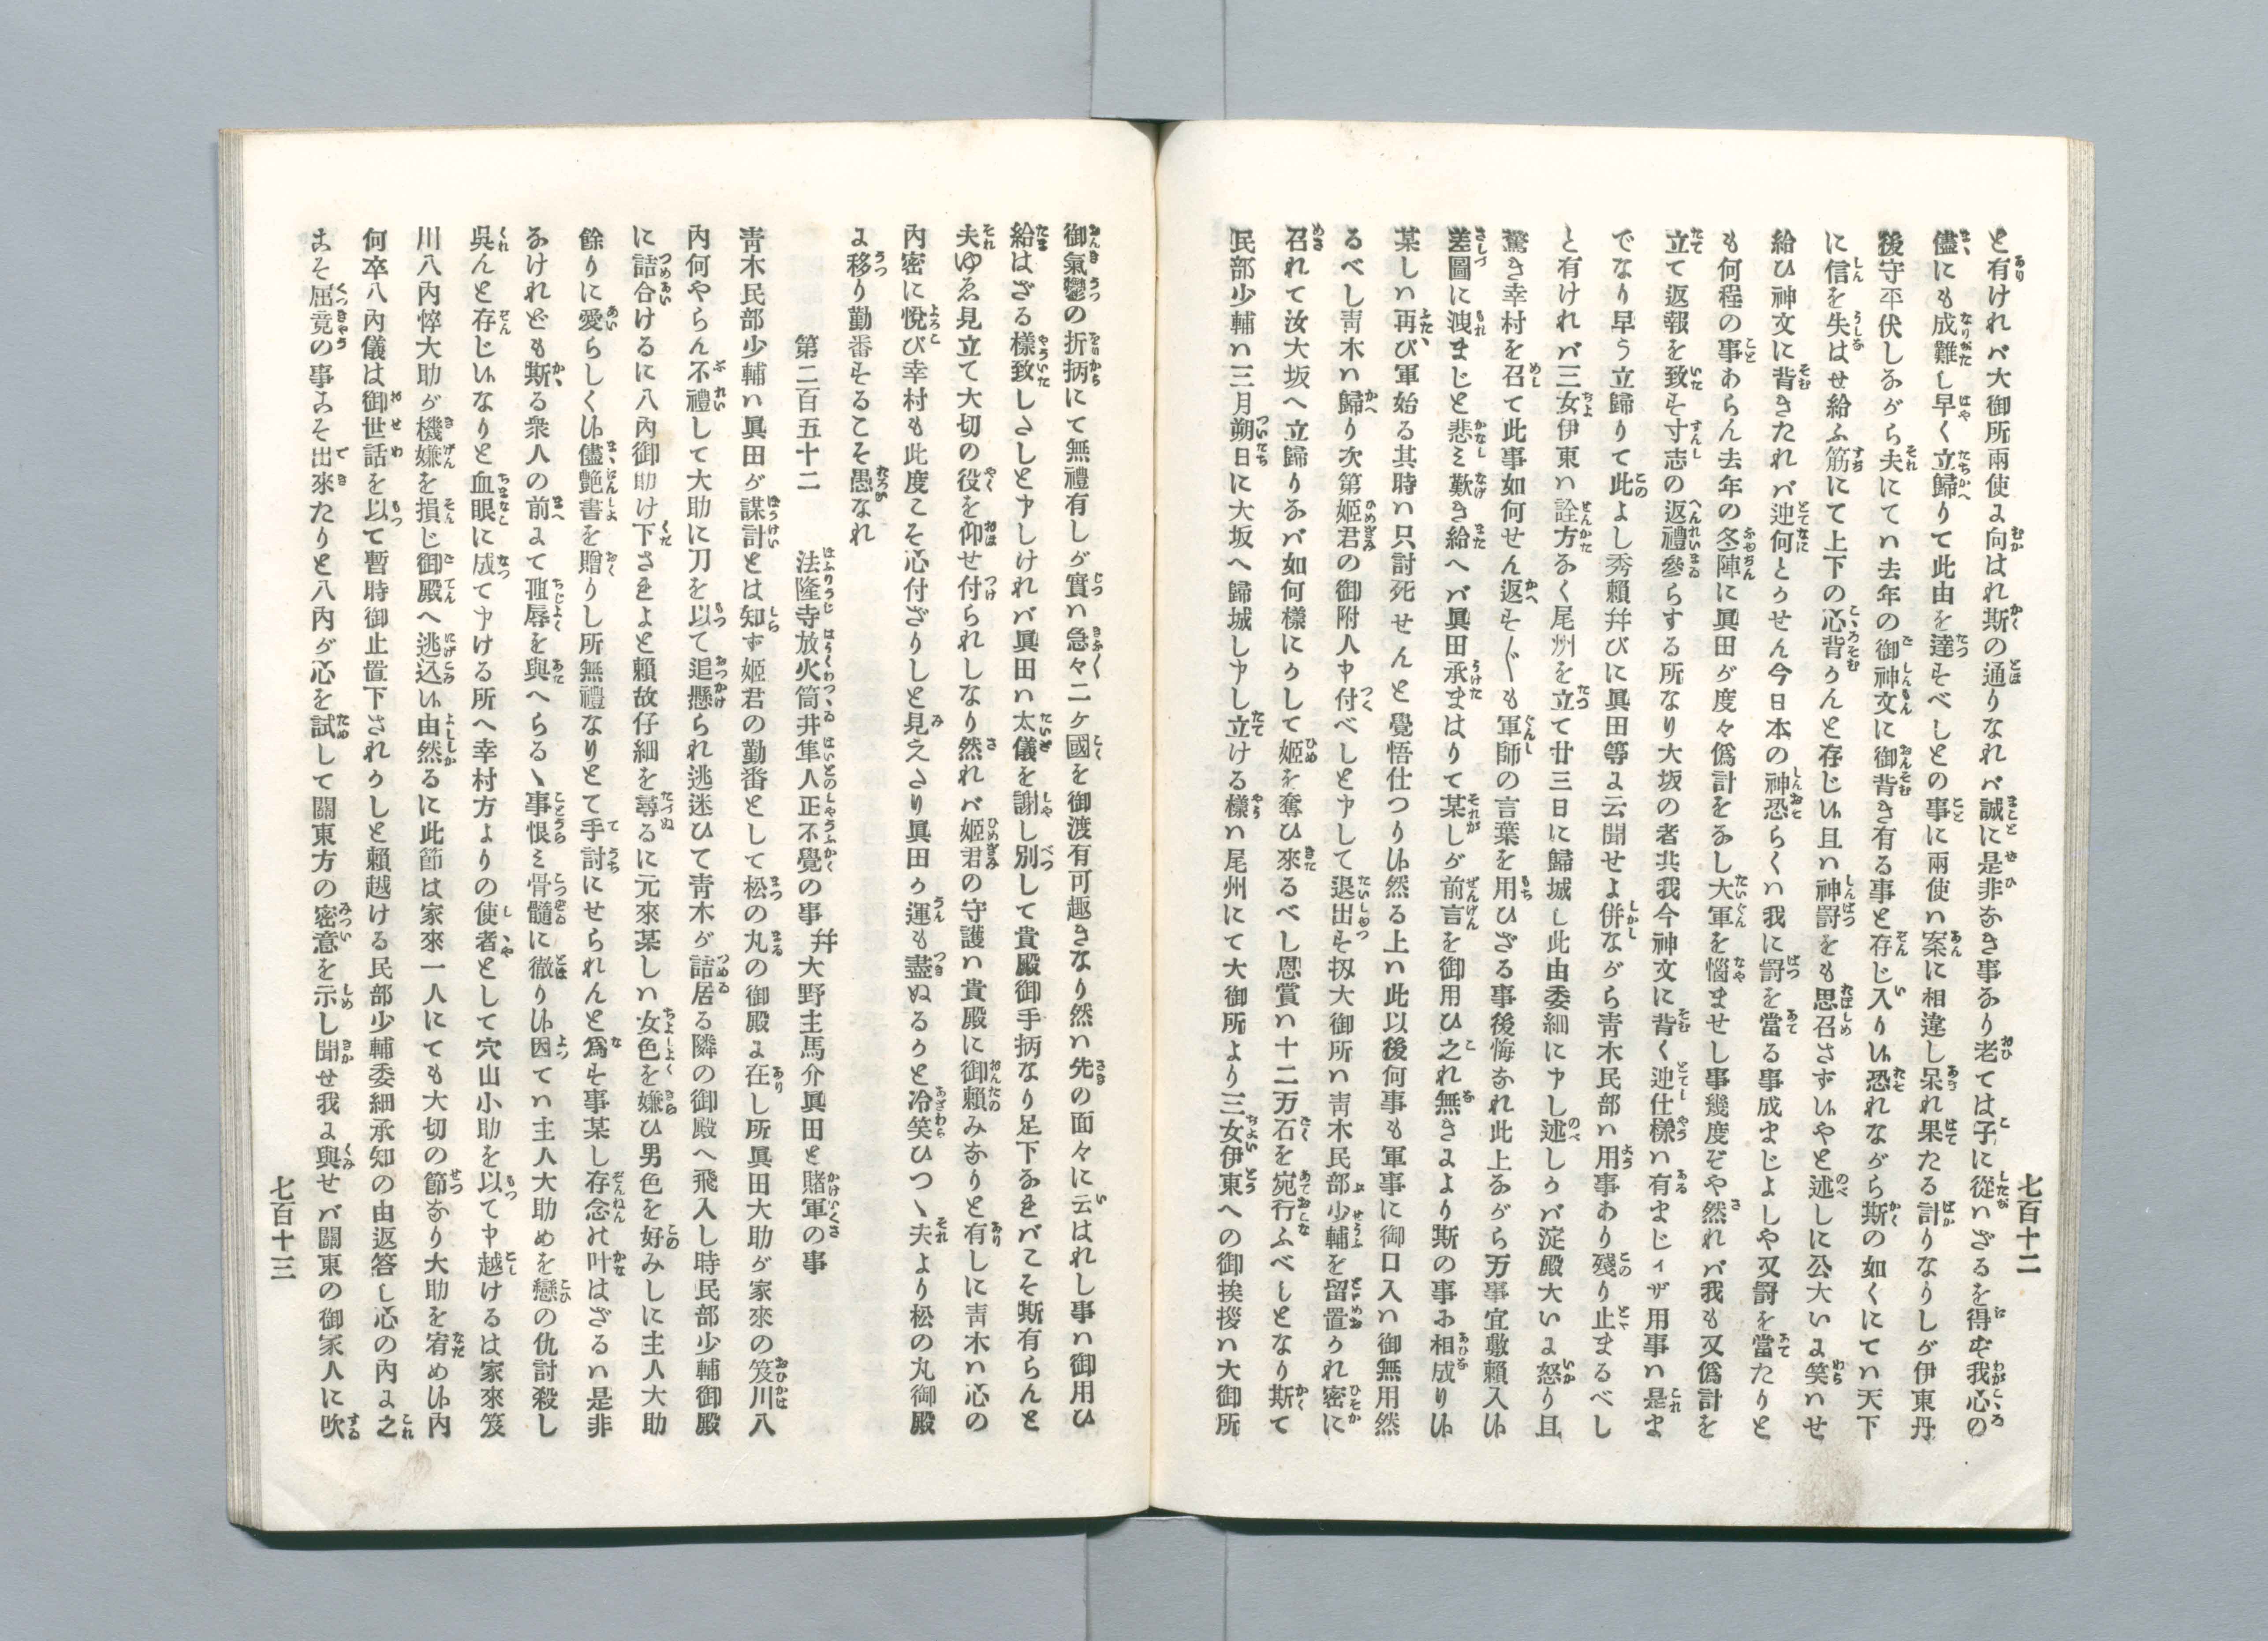 七百十二
と有けれバ大御所兩使よ向はれ斯の通りなれバ誠に是非なき事なり老ては子に從ハざるを得ず我心の
儘にも成難し早く立歸りて此由を達すべしとの事に兩使ハ案に相違し呆れ果たる計りなりしが伊東丹
後守平伏しながら夫にてハ去年の御神文に御背き有る事と存じ入りい恐れながら斯の如くにてハ天下
に信を失はせ給ふ筋にて上下の心背かんと存じい且ハ神罸をも思召さずいやと述しに公大いよ笑ハせ
給ひ神文に背きたれバ迚何とかせん今日本の神恐らくハ我に罸を當る事成まじよしや又罸を當たりと
も何程の事あらん去年の冬陣に眞田が度々僞計をなし大軍を惱ませし事幾度ぞや然れバ我も又僞計を
立て返報を致す寸志の返禮參らする所なり大坂の者共我今神文に背く迚仕樣ハ有まじィザ用事ハ是ま
でなり早う立歸りて此よし秀賴幷びに眞田等よ云聞せよ併ながら靑木民部ハ用事あり殘り止まるべし
と有けれバ三女伊東ハ詮方なく尾州を立て廿三日に歸城し此由委細に申し述しかバ淀殿大いよ怒り且
驚き幸村を召て此事如何せん返す〲も軍師の言葉を用ひざる事後悔なれ此上ながら万事宜敷賴入い
差圖に洩まじと悲ミ歎き給へバ眞田承まはりて某しが前言を御用ひ之れ無きより斯の事お相成りい
某しハ再び軍始る其時ハ只討死せんと覺悟仕つりい然る上ハ此以後何事も軍事に御口入ハ御無用然
るべし靑木ハ歸り次第姬君の御附人申付べしと申して退出す扨大御所ハ靑木民部少輔を留置かれ密に
召れて汝大坂へ立歸りなバ如何樣にかして姬を奪ひ來るべし恩賞ハ十二万石を宛行ふべしとなり斯て
民部少輔ハ三月朔日に大坂へ歸城し申し立ける樣ハ尾州にて大御所より三女伊東への御挨拶ハ大御所
御氣鬱の折抦にて無禮有しが實ハ急々二ヶ國を御渡有可趣きなり然ハ先の面々に云はれし事ハ御用ひ
給はざる樣致しさしと申しけれバ眞田ハ太儀を謝し別して貴殿御手柄なり足下なきバこそ斯有らんと
夫ゆゑ見立て大切の役を仰せ付られしなり然れバ姬君の守護ハ貴殿に御賴みなりと有しに靑木ハ心の
內密に悅び幸村も此度こそ心付ざりしと見えさり眞田か運も盡ぬるかと冷笑ひつヽ夫より松の丸御殿
よ移り勤番するこそ愚なれ
第二百五十二　法隆寺放火筒井隼人正不覺の事　幷大野主馬介眞田と賭軍の事
靑木民部少輔ハ眞田が謀計とは知ず姬君の勤番として松の丸の御殿よ在し所眞田大助が家來の笈川八
內何やらん不禮して大助に刀を以て追懸られ逃迷ひて靑木が詰居る隣の御殿へ飛入し時民部少輔御殿
に詰合けるに八內御助け下さきよと賴故仔細を尋るに元來某しハ女色を嫌ひ男色を好みしに主人大助
餘りに愛らしくい儘艶書を贈りし所無禮なりとて手討にせられんと爲す事某し存念れ叶はざるハ是非
なけれども斯る衆人の前よて恥辱を與へらるヽ事恨ミ骨髓に徹りい因てハ主人大助めを戀の仇討殺し
呉んと存じいなりと血眼に成て申ける所へ幸村方よりの使者として穴山小助を以て申越けるは家來笈
川八內悴大助が機嫌を損じ御殿へ逃込い由然るに此節は家來一人にても大切の節なり大助を宥めい內
何卒八內儀は御世話を以て暫時御止置下されかしと賴越ける民部少輔委細承知の由返答し心の內よ之
こそ屈竟の事こそ出來たりと八內が心を試して關東方の密意を示し聞せ我よ與せバ關東の御家人に吹
七百十三